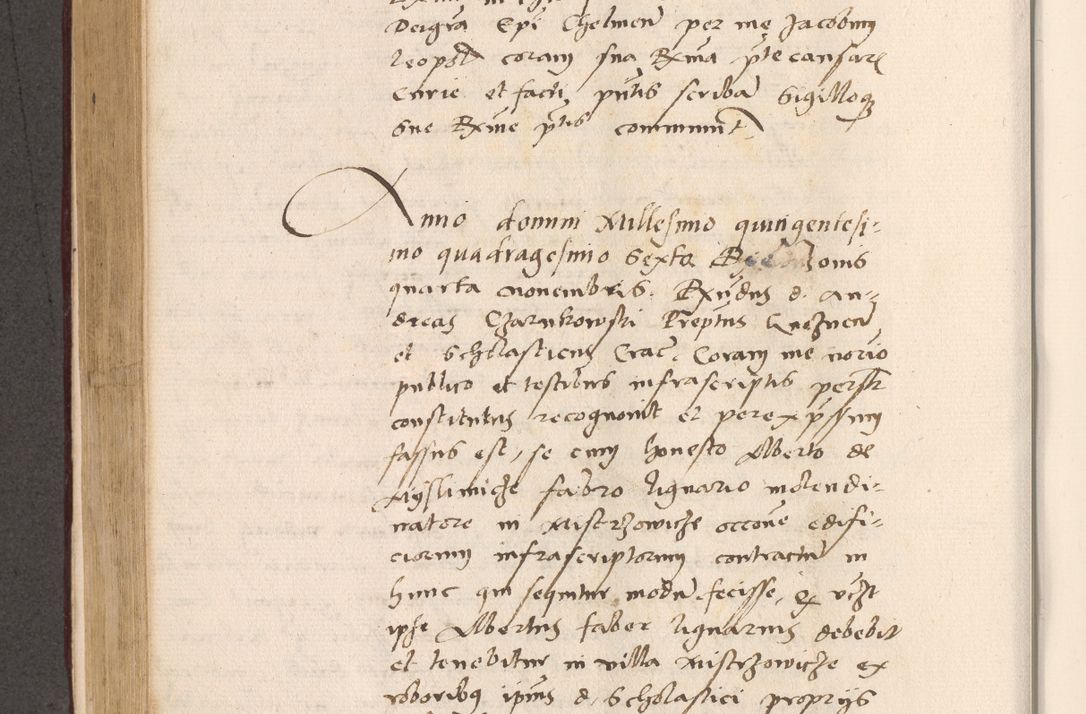 Dei gra Epi Chelmen per me Jacobum
leopol coram sua Rma pte causar
Curie et facti pntis scriba Sigilloq
Sue Rme ptis communit
Anno domini Millesimo quingentesi-
mo quadragesimo Sexto Die Jovis
quarta novembris. Rxndus d. An-
dreas Czarnkowski Preptus Gneznen
et Scholasticus Crac. Coram me norio
publico et testibus infrascriptis persr
constitutus recognovit et per expssum
fassus est, se cum honesto Alberto de
Myslimicze fabro lignario molendi-
natore in Mistrzowicze occone edifi-
ciorum infrascriptorum contractu in
hunc qui sequitur modu fecisse, q vczt
ipse Albertus faber lignarius debebit
et tenebitur in villa Mistrzowicze ex
roboribq ipius d. Scholastici proprijs